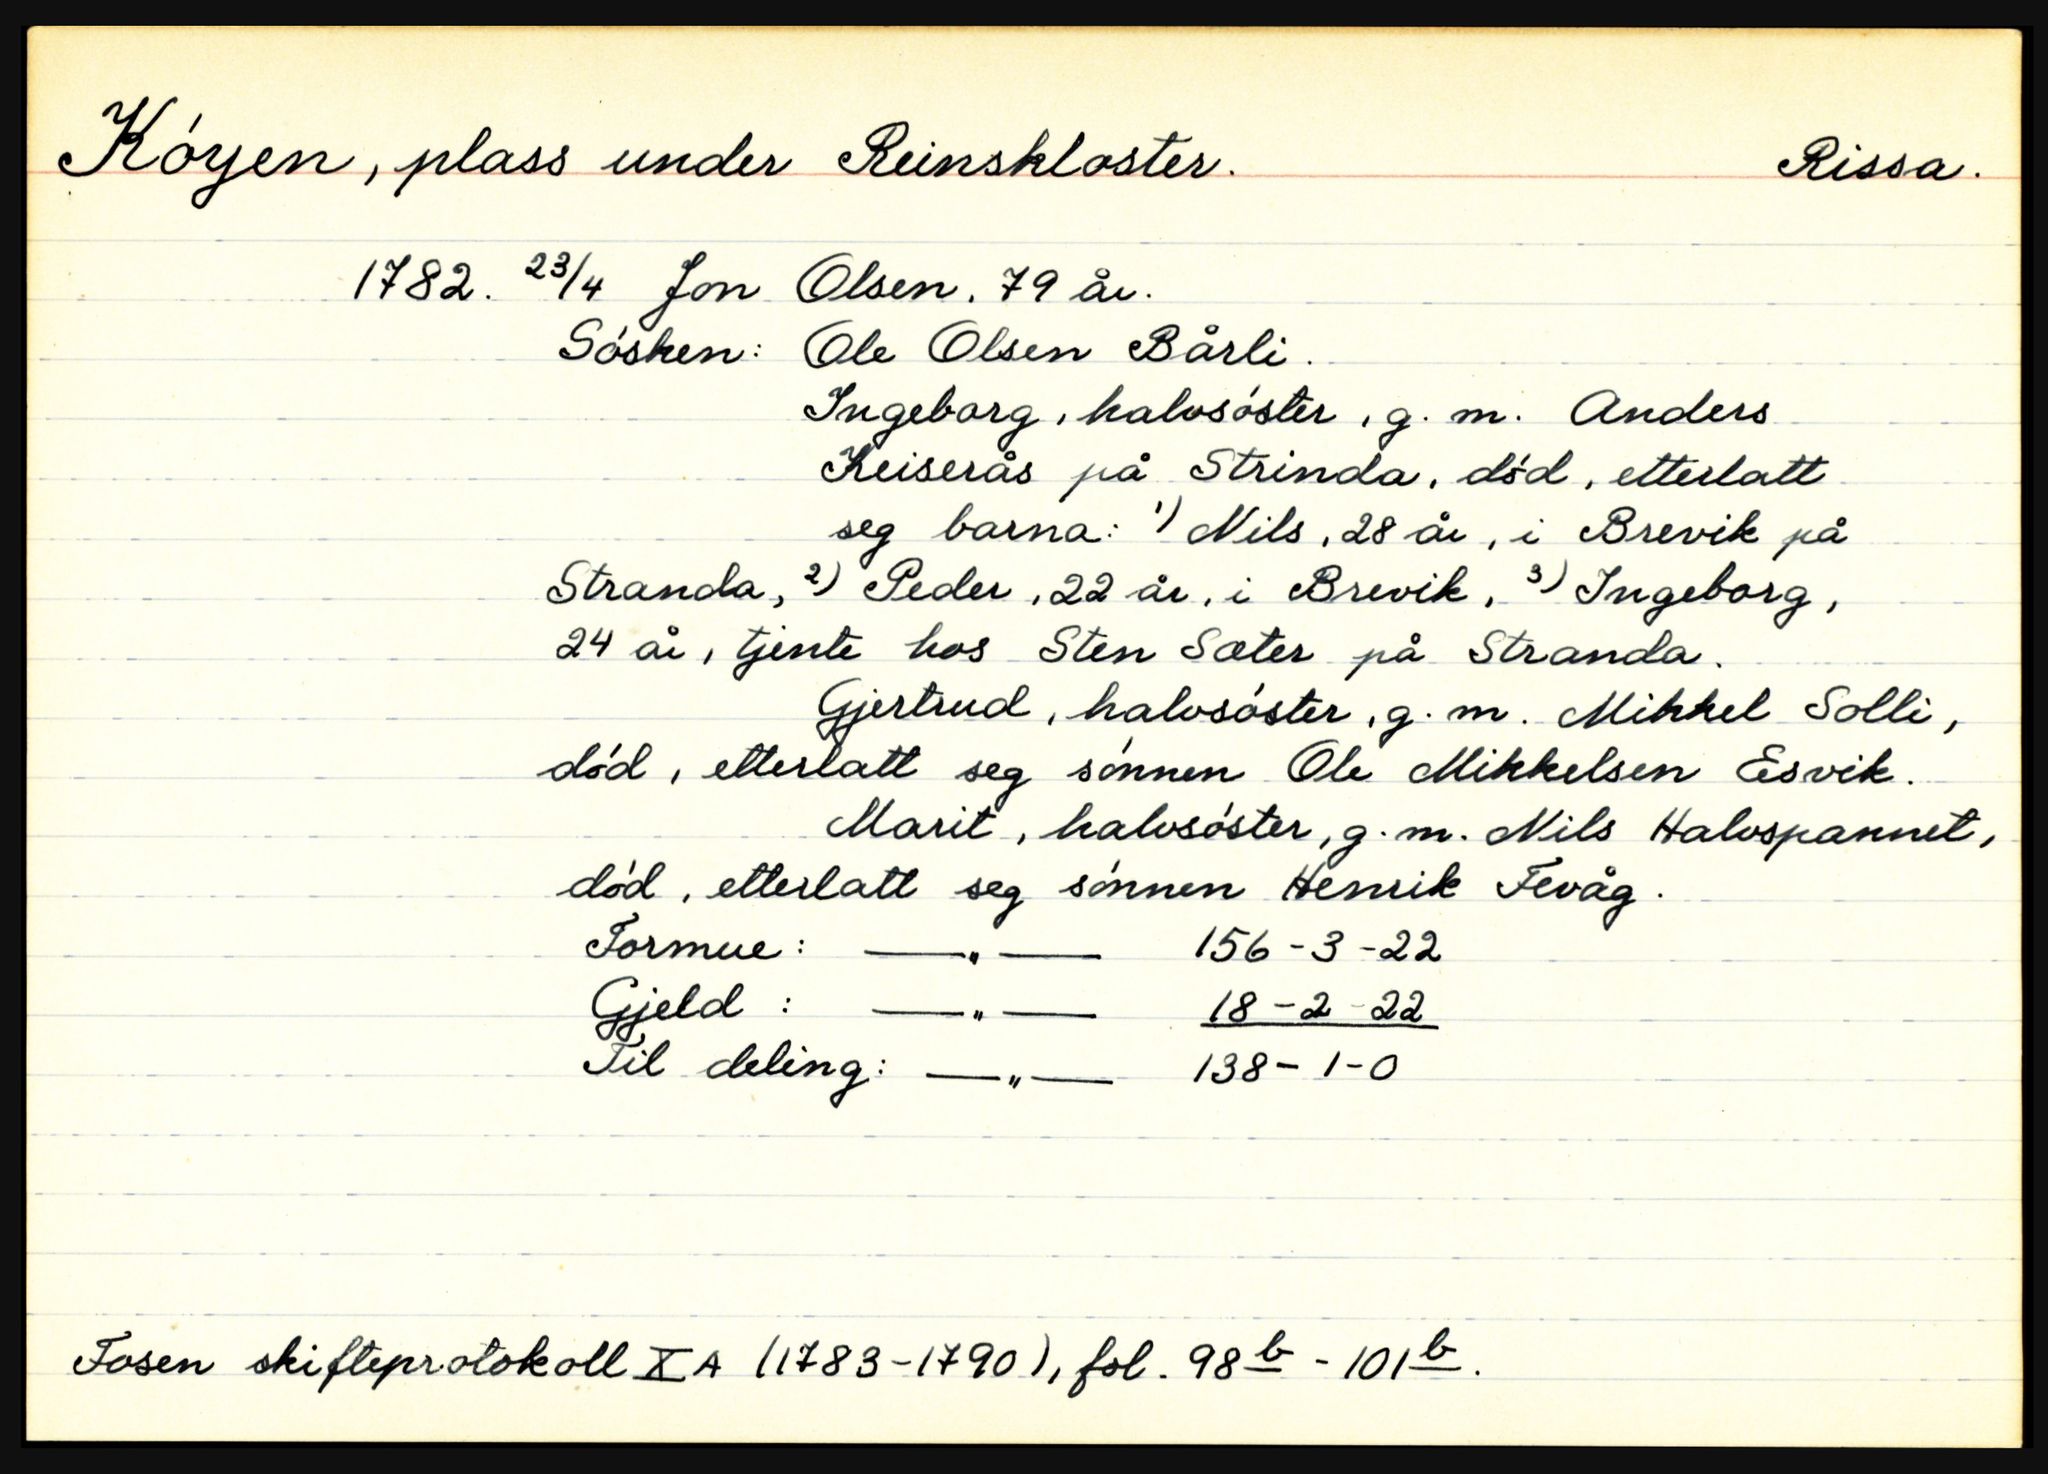 Köyen, plass under Reinskloster. Rissa.
1782. 23/4 Jon Olsen, 79 år.
Sösken: Ole Olsen Bårli.
Ingeborg, halvsöster, g. m. Anders
Keiserås på Strinda, död, etterlatt
seg barna: 1) Nils, 28 år, i Brevik på
Stranda, 2) Peder, 22 år, i Brevik, 3) Ingeborg,
24 år, tjente hos Sten Sæter på Stranda.
Gjertrud, halvsöster, g. m. Mikkel Solli,
död, etterlatt seg sönnen Ole Mikkelsen Esvik.
Marit, halvsöster, g. m. Nils Halvspannet,
död, etterlatt seg sönnen Henrik Fevåg.
Formue: —"— 156-3-22
Gjeld : —"— 18-2-22
Til deling: —"— 138-1-0
Fosen skifteprotokoll X A (1783-1790), fol. 98b - 101b.